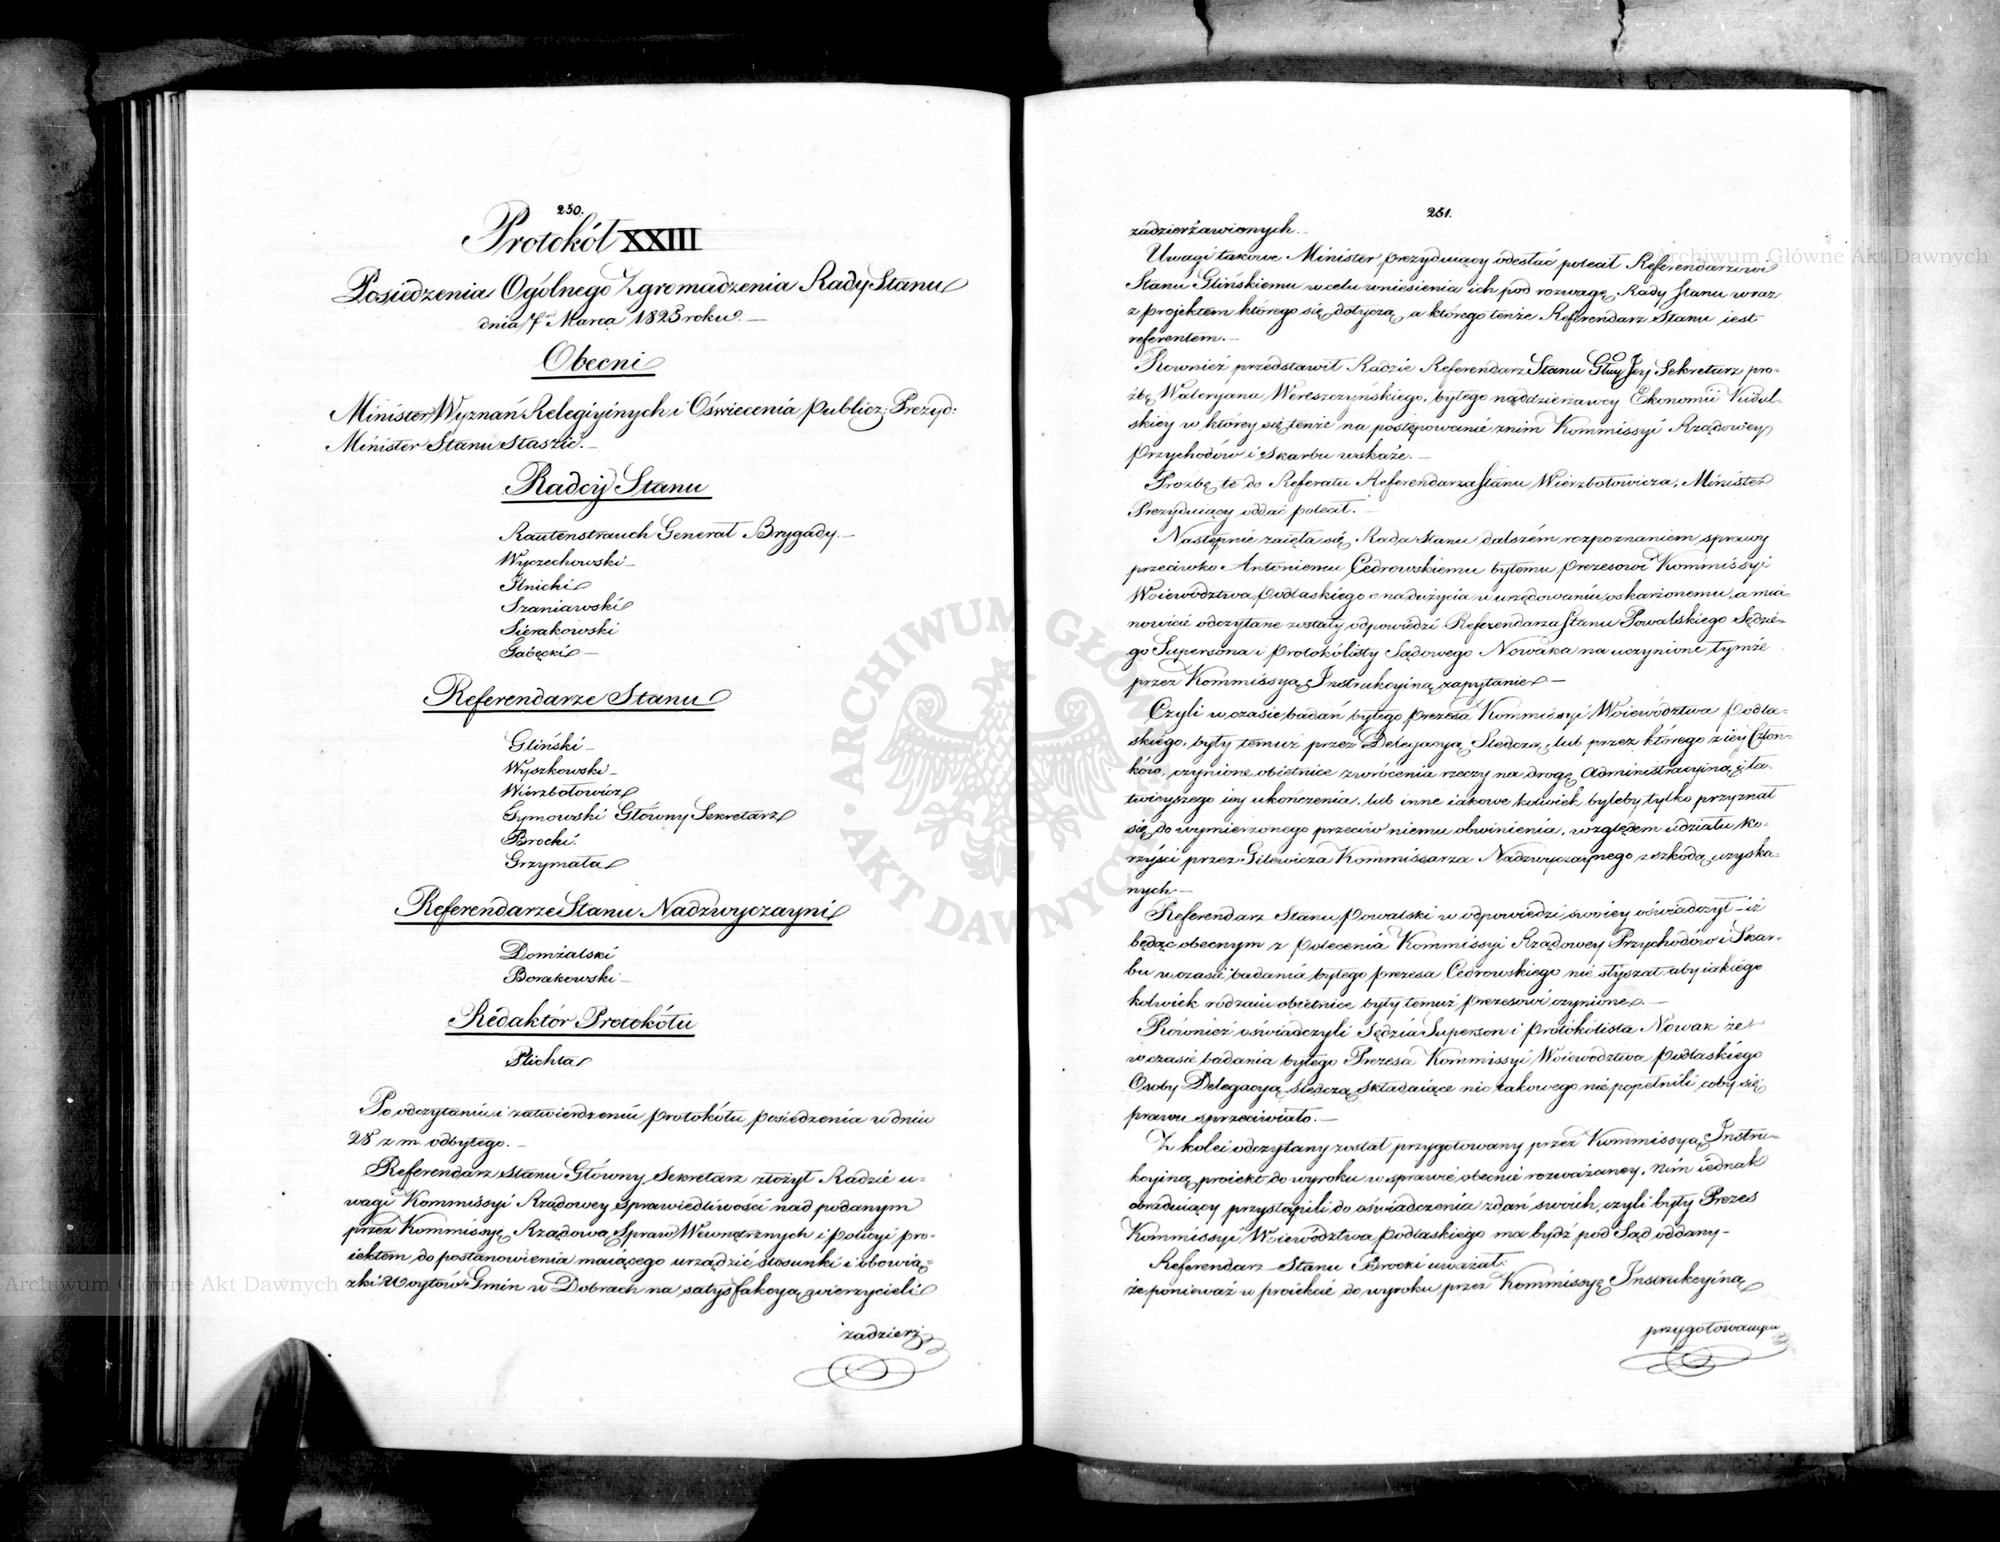 230.
Protokół XXIII
Posiedzenia Ogólnego Zgromadzenia Rady Stanu
dnia 7 Marca 1823 roku. —
Obecni
Minister Wyznań Relegiyinych i Oświecenia Publicz: Prezyd:
Minister Stanu Staszic. —
Radcy Stanu
Rautenstrauch Generał Brygady. —
Wyczechowski —
Ilnicki
Szaniawski
Sierakowski
Gałęcki —
Referendarze Stanu
Gliński —
Wyszkowski —
Wierzbołowicz
Tymowski Główny Sekretarz
Brocki.
Grzymała
Referendarze Stanu Nadzwyczayni
Domżalski
Borakowski —
Redaktór Protokółu
Plichta
Po odczytaniu i zatwierdzeniu protokółu posiedzenia w dniu
28 z. m. odbytego. —
Referendarz Stanu Główny Sekretarz złożył Radzie u-
wagi Kommissyi Rządowey Sprawiedliwości nad podanym
przez Kommissyę Rządową Spraw Wewnętrznych i Policyi pro-
iektem do postanowienia maiącego urządzić stosunki i obowią-
zki Woytów Gmin w Dobrach na satysfakcyą wierzycieli
zadzierż
231.
zadzierżawionych. —
Uwagi takowe Minister prezyduiący odesłać polecił Referendarzowi
Stanu Glińskiemu w celu wniesienia ich pod rozwagę Rady Stanu wraz
z projektem którego się dotyczą, a którego tenże Referendarz Stanu iest
referentem. —
Rownież przedstawił Radzie Referendarz Stanu Głuy Jey Sekretarz pro-
źbę Waleryana Wereszczyńskiego, byłego naddzierżawcy Ekonomii Kidul-
skiey w którey się tenże na postępowanie z nim Kommissyi Rządowey
Przychodów i Skarbu wskaże. —
Prozbę tę do Referatu Referendarza Stanu Wierzbołowicza, Minister
Prezyduiący oddać polecił. —
Następnie zaięła się Rada Stanu dalszém rozpoznaniem sprawy
przeciwko Antoniemu Cedrowskiemu byłemu Prezesowi Kommissyi
Woiewództwa Podlaskiego o nadużycia w urzędowaniu oskarżonemu, a mia-
nowicie odczytane zostały odpowiedzi Referendarza Stanu Powalskiego Sędzie-
go Supersona i Protokólisty Sądowego Nowaka na uczynione tymże
przez Kommissyą Instrukcyiną zapytanie —
Czyli w czasie badań byłego Prezesa Kommissyi Woiewództwa Podla-
skiego, były temuż przez Delegacyą Śledczą, lub przez którego z iey Człon-
ków, czynione obietnice zwrócenia rzeczy na drogę Administracyiną i ła-
twieyszego iey ukończenia, lub inne iakowe kolwiek byleby tylko przyznał
się do wymierzonego przeciw niemu obwinienia, względem udziału ko-
rzyści przez Gilewicza Kommissarza Nadzwyczaynego z szkodą uzyska-
nych —
Referendarz Stanu Powalski w odpowiedzi swoiey oświadczył — iż
będąc obecnym z polecenia Kommissyi Rządowey Przychodów i Skar-
bu w czasie badania byłego Prezesa Cedrowskiego nie słyszał aby iakiego
kolwiek rodzaiu obietnice były temuż Prezesowi czynione. —
Również oświadczyli Sędzia Superson i Protokólista Nowak że
w czasie badania byłego Prezesa Kommissyi Woiewództwa Podlaskiego
Osoby Delegacyą Śledczą składaiące nic takowego nie popełnili coby się
prawu sprzeciwiało. —
Z kolei odczytany został przygotowany przez Kommissyą Instru-
kcyiną proiekt do wyroku w sprawie obecnie rozważaney, nim iednak
obraduiący przystąpili do oświadczenia zdań swoich, czyli były Prezes
Kommissyi Woiewództwa Podlaskiego ma bydź pod Sąd oddany —
Referendarz Stanu Brocki uważał:
że ponieważ w proiekcie do wyroku przez Kommissyę Instrukcyiną
przygotowanym
Archiwum Główne Akt Dawnych
Archiwum Główne Akt Dawnych
ARCHIWUM GŁÓWNE AKT DAWNYCH